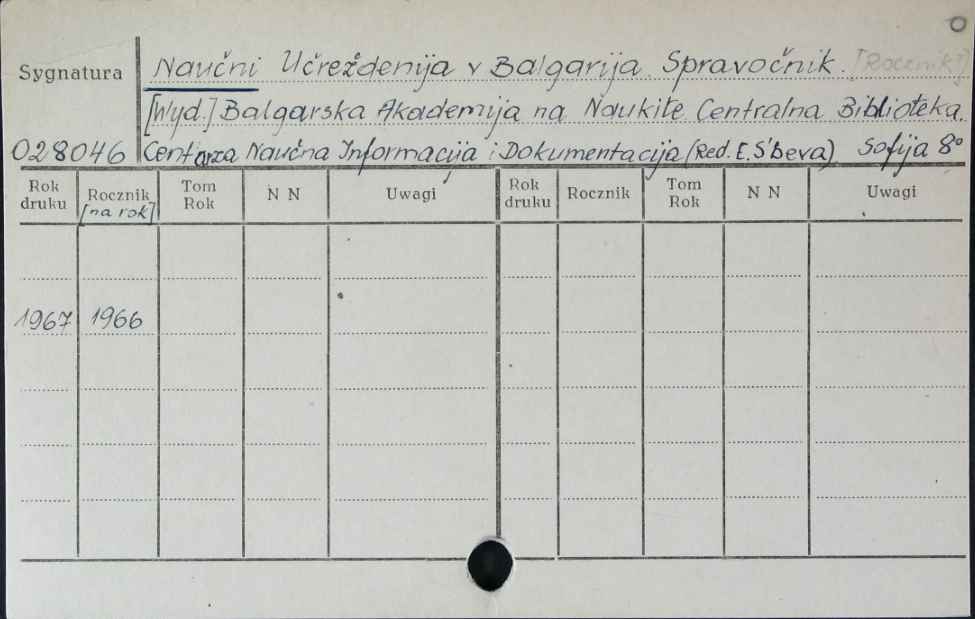 O
Sygnatura Naučni Učreždenija v Balgarija. Spravočnik. [Rocznik]
[Wyd.] Balgarska Akademija na Naukite. Centralna Biblioteka.
028046 Centar za Naučna Informacija i Dokumentacija (Red. E. S'beva) Sofija 8°
Rok druku Rocznik [na rok] Tom Rok N N Uwagi Rok druku Rocznik Tom Rok N N Uwagi
1967 1966